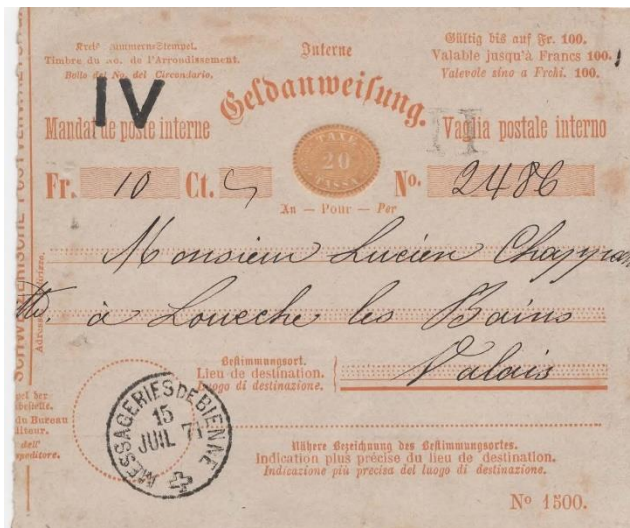 Kreis-Nummern-Stempel.
Timbre du No. de l'Arrondissement.
Bollo del No. del Circondario.
IV
Interne
Geldanweisung.
Gültig bis auf Fr. 100.
Valable jusqu'à Francs 100.
Valevole sino a Frchi. 100.
Mandat de poste interne
H
Vaglia postale interno
TAXE
20
TASSA
Fr. 10 Ct.
No. 2486
An — Pour — Per
Monsieur Lucien
à Loueche les Bains
Bestimmungsort.
Lieu de destination.
Luogo di destinazione.
Valais
MESSAGERIES DE BIENNE
15
JUIL
du Bureau
dell'
Nähere Bezeichnung des Bestimmungsortes.
Indication plus précise du lieu de destination.
Indicazione più precisa del luogo di destinazione.
No 1500.